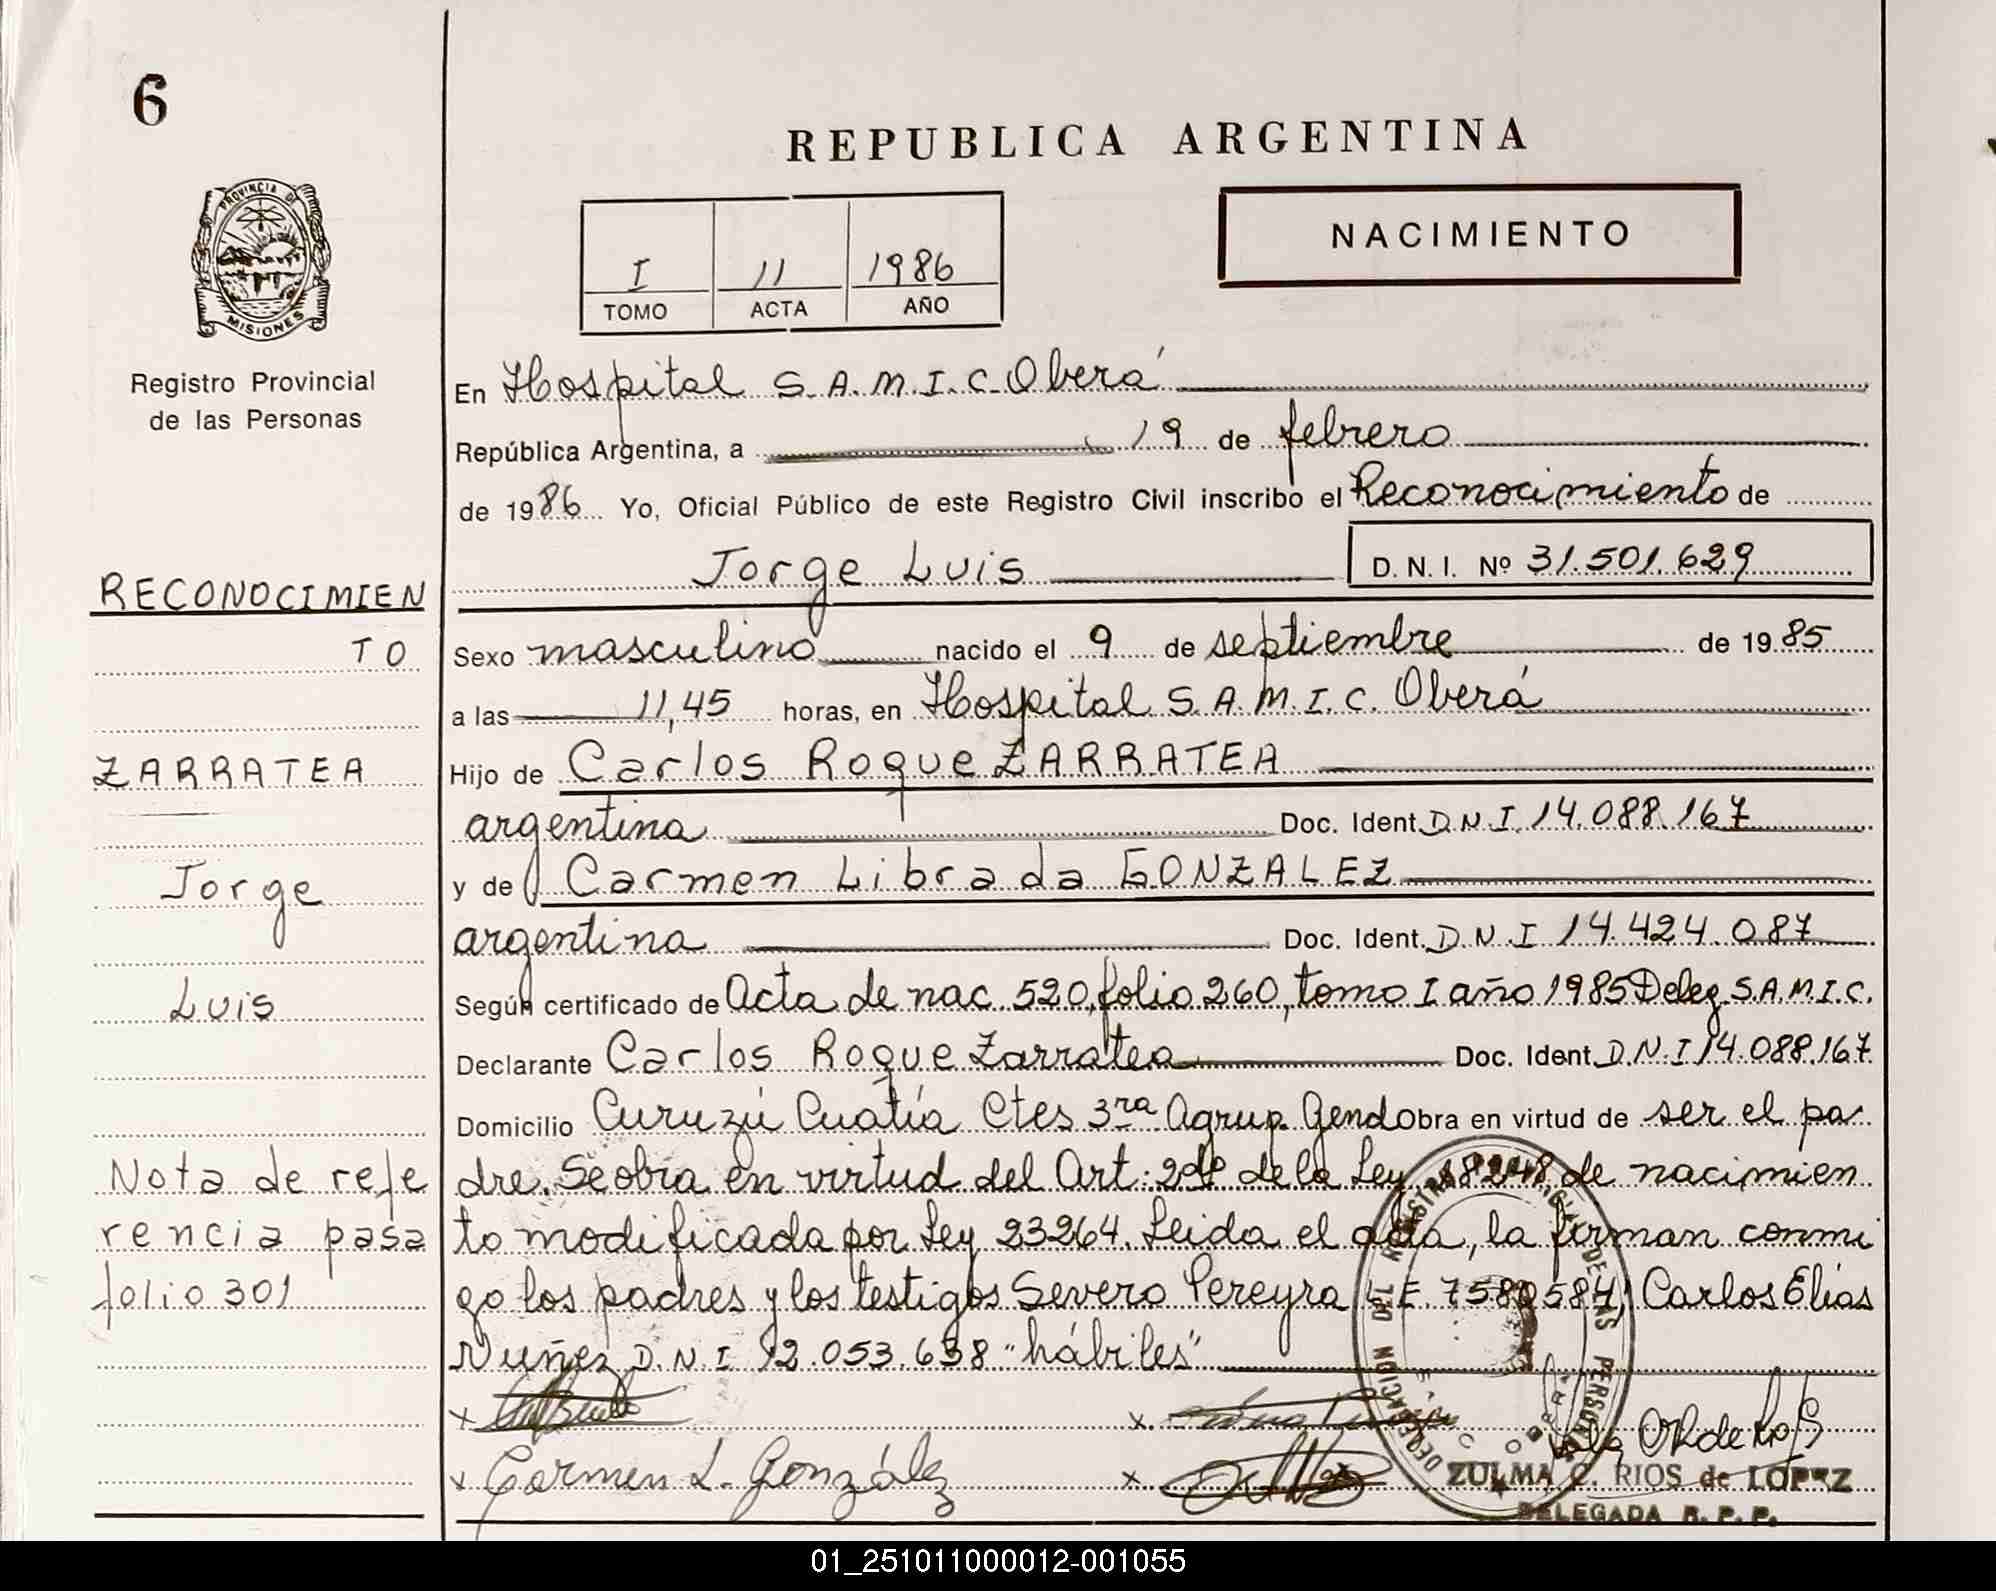 6
REPUBLICA ARGENTINA
PROVINCIA DE
MISIONES
Registro Provincial
de las Personas
NACIMIENTO
I 11 1986
TOMO ACTA AÑO
En Hospital S.A.M.I.C. Oberá
República Argentina, a 19 de febrero
de 1986 Yo, Oficial Público de este Registro Civil inscribo el Reconocimiento de
Jorge Luis D.N.I. Nº 31.501.629
RECONOCIMIEN
TO
Sexo masculino nacido el 9 de septiembre de 1985
a las 11,45 horas, en Hospital S.A.M.I.C. Oberá
ZARRATEA
Hijo de Carlos Roque ZARRATEA
argentina Doc. Ident. D.N.I. 14.088.167
Jorge
y de Carmen Librada GONZALEZ
argentina Doc. Ident. D.N.I 14.424.087
Luis
Según certificado de Acta de nac. 520, folio 260, tomo I año 1985 Deleg. S.A.M.I.C.
Declarante Carlos Roque Zarratea Doc. Ident. D.N.I 14.088.167
Domicilio Curuzú Cuatía Ctes 3ra Agrup. Gend obra en virtud de ser el pa
Nota de refe
rencia pasa
folio 301
dre. Se obra en virtud del Art: 2do de la Ley 18248, de nacimien
to modificada por Ley 23264. Leida el acta, la firman conmi
go los padres y los testigos Severo Pereyra L.E. 7580584, Carlos Elías
Nuñez D.N.I 12.053.638 "hábiles"
x
x
x Carmen L. González
x
DELEGACION DEL REGISTRO PROVINCIAL DE LAS PERSONAS
ZULMA C. RIOS de LOPEZ
DELEGADA R. P. P.
01_251011000012-001055